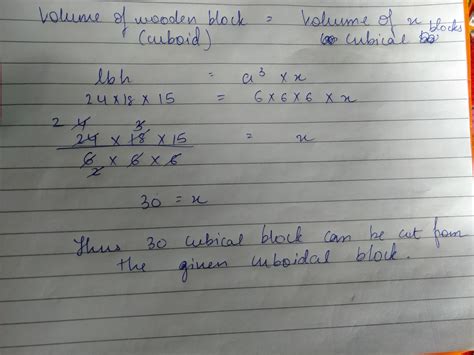 Volume of wooden block = Volume of x blocks
(cuboid) cubical
lbh = a³ × x
24 × 18 × 15 = 6 × 6 × 6 × x
2 4 3
24 × 18 × 15 = x
6 × 6 × 6
2
30 = x
Thus 30 cubical block can be cut from
the given cuboidal block.